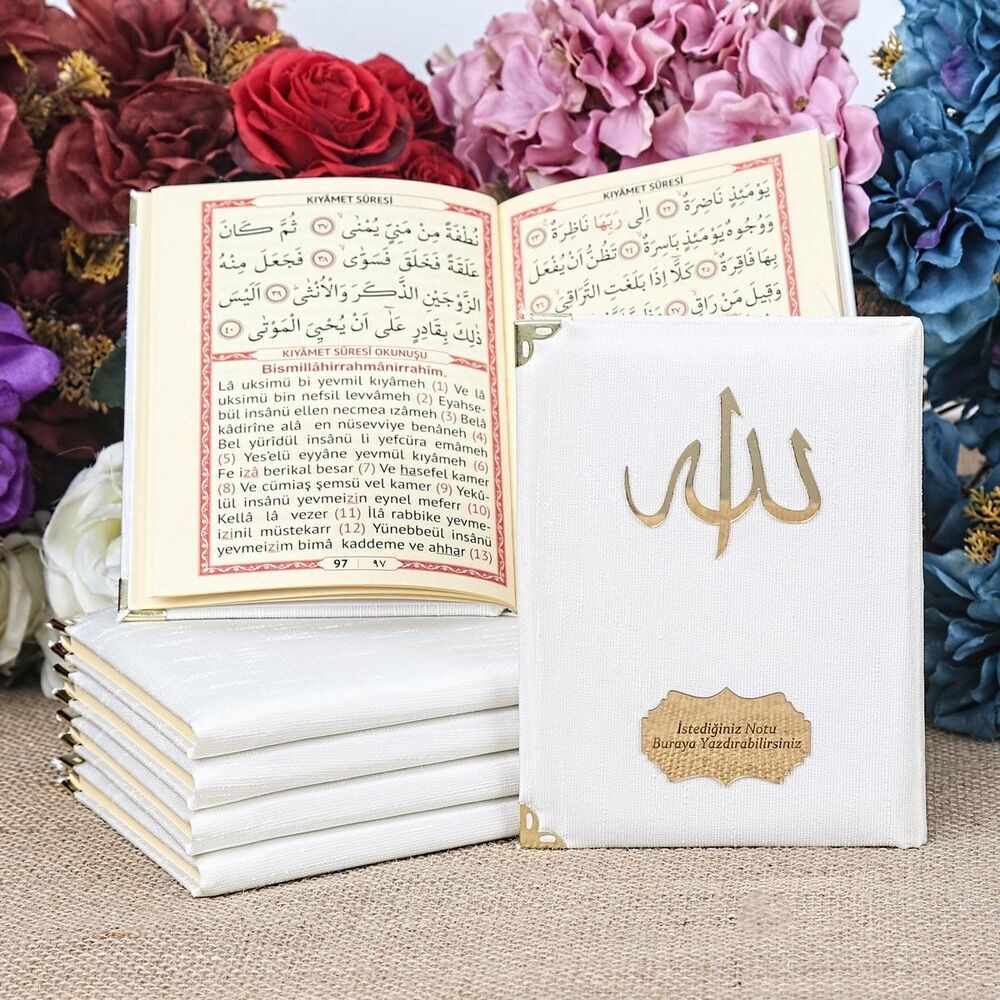 KIYÂMET SÛRESİ
نُطْفَةً مِنْ مَنِيٍّ يُمْنٰىۙ ﴿٣٧﴾ ثُمَّ كَانَ
عَلَقَةً فَخَلَقَ فَسَوّٰىۙ ﴿٣٨﴾ فَجَعَلَ مِنْهُ
الزَّوْجَيْنِ الذَّكَرَ وَالْاُنْثٰىۜ ﴿٣٩﴾ اَلَيْسَ
ذٰلِكَ بِقَادِرٍ عَلٰٓى اَنْ يُحْيِيَ الْمَوْتٰى ﴿٤٠﴾
KIYÂMET SÛRESİ OKUNUŞU
Bismillâhirrahmânirrahîm.
Lâ uksimü bi yevmil kıyâmeh (1) Ve lâ
uksimü bin nefsil levvâmeh (2) Eyahse-
bül insânü ellen necmea ızâmeh (3) Belâ
kâdirîne alâ en nüsevviye benâneh (4)
Bel yürîdül insânü li yefcüra emâmeh
(5) Yes'elü eyyâne yevmül kıyâmeh (6)
Fe izâ berikal besar (7) Ve hasefel kamer
(8) Ve cümiaş şemsü vel kamer (9) Yekû-
lül insânü yevmeizin eynel meferr (10)
Kellâ lâ vezer (11) İlâ rabbike yevme-
izinil müstekarr (12) Yünebbeül insânü
yevmeizim bimâ kaddeme ve ahhar (13)
97 ٩٧
KIYÂMET SÛRESİ
يَوْمَئِذٍ نَاضِرَةٌۙ ﴿٢٢﴾ اِلٰى رَبِّهَا نَاظِرَةٌۚ ﴿٢٣﴾
وَوُجُوهٌ يَوْمَئِذٍ بَاسِرَةٌۙ ﴿٢٤﴾ تَظُنُّ اَنْ يُفْعَلَ
بِهَا فَاقِرَةٌۜ ﴿٢٥﴾ كَلَّٓا اِذَا بَلَغَتِ التَّرَاقِيَۙ ﴿٢٦﴾
وَقِيلَ مَنْ رَاقٍۙ ﴿٢٧﴾
الله
İstediğiniz Notu
Buraya Yazdırabilirsiniz